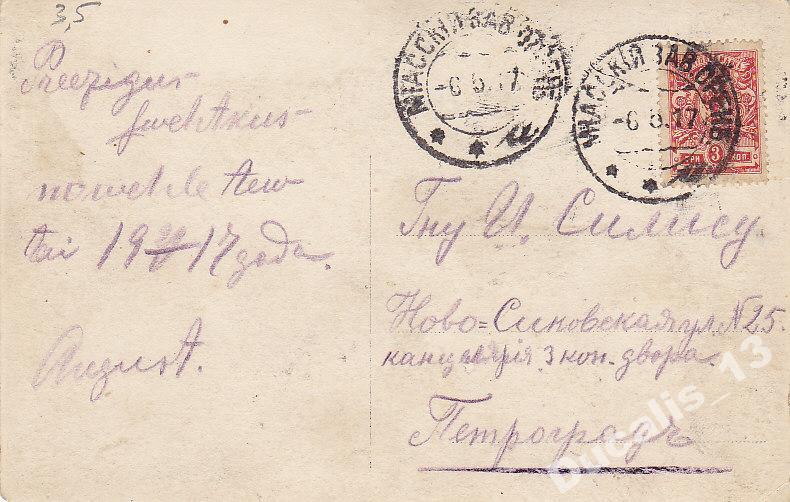 3,5
Preezigus
swehtkus
nowehle tew
tai 1917 года.
August.
МІАССКІЙ ЗАВ. ОРЕНБ.
-6 5.17
МІАССКІЙ ЗАВ. ОРЕНБ.
-6 5.17
ТРИ 3 КОП.
Гну И. Силису
Ново=Синовская ул N25.
канцелярія 3 кон. двора.
Петроградъ
Ducalis_13